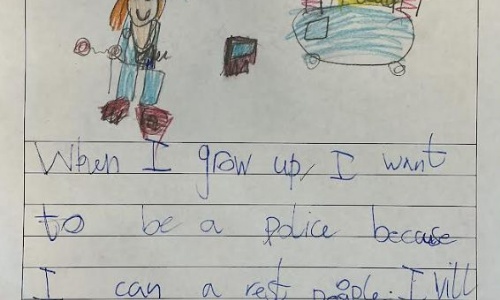 When I grow up, I want
to be a police because
I can a rest people. I will